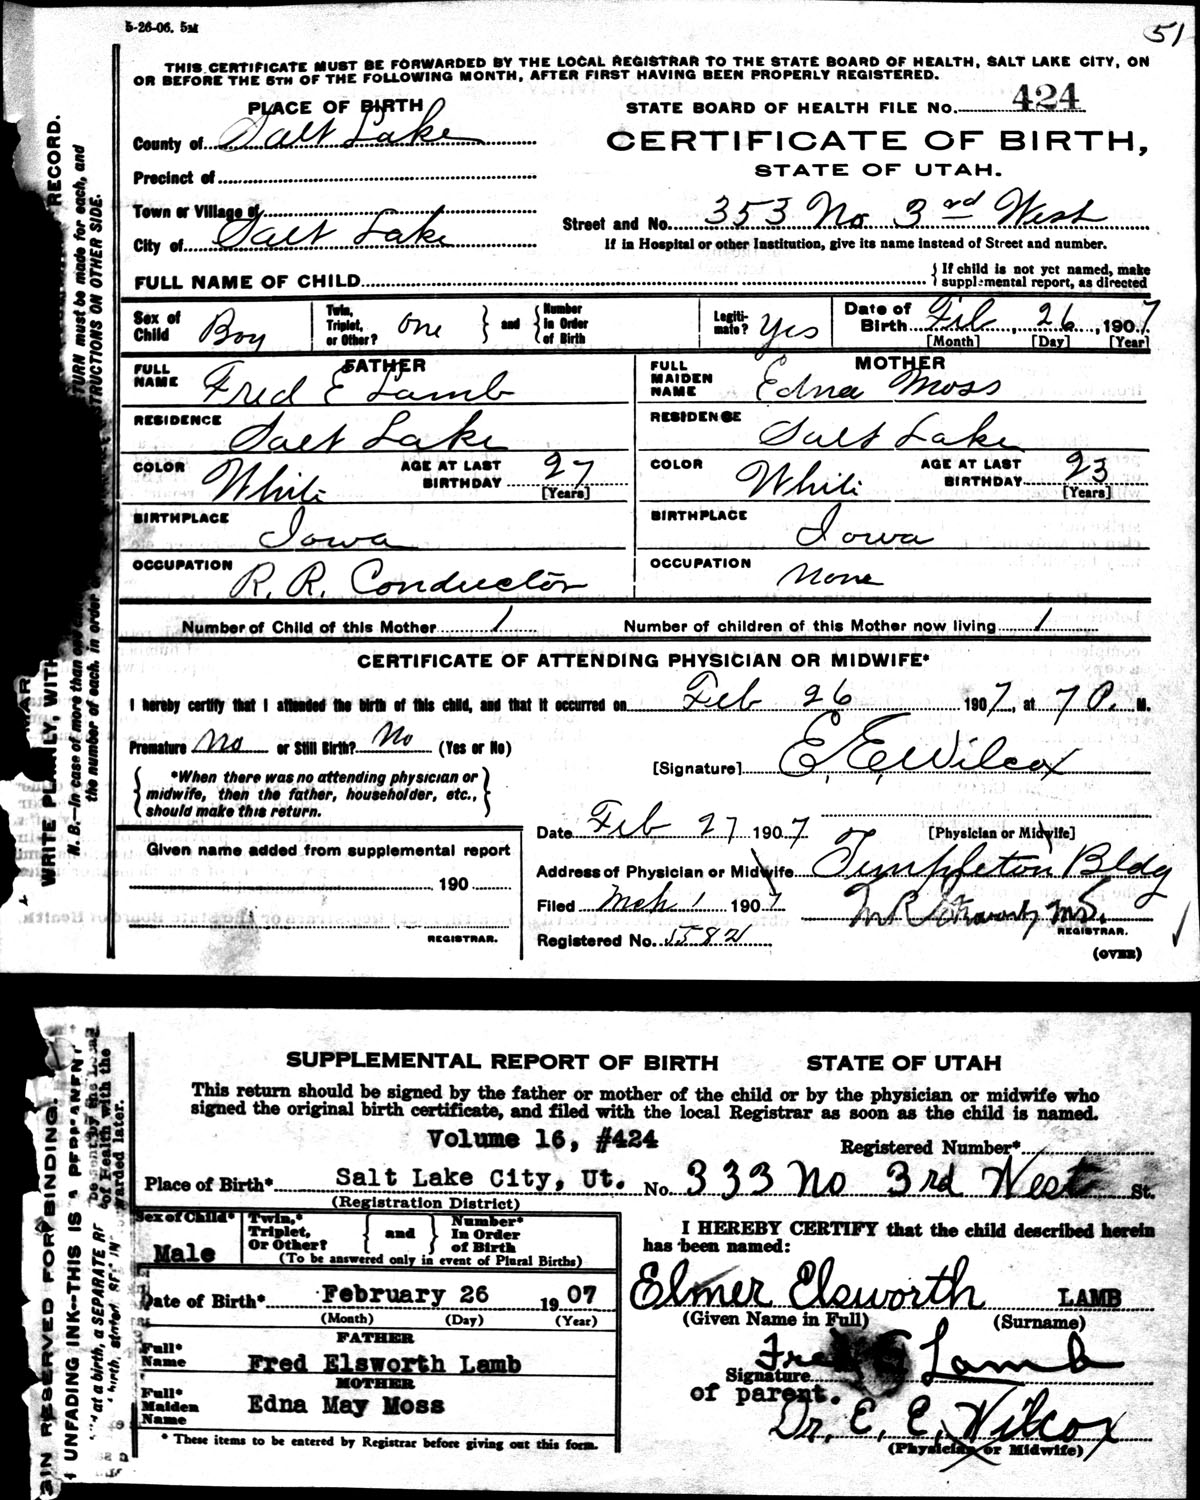 5-26-06. 5M
51
THIS CERTIFICATE MUST BE FORWARDED BY THE LOCAL REGISTRAR TO THE STATE BOARD OF HEALTH, SALT LAKE CITY, ON
OR BEFORE THE 5TH OF THE FOLLOWING MONTH, AFTER FIRST HAVING BEEN PROPERLY REGISTERED.
PLACE OF BIRTH
STATE BOARD OF HEALTH FILE NO. 424
County of Salt Lake
CERTIFICATE OF BIRTH,
STATE OF UTAH.
Precinct of
Town or Village of
Street and No. 353 No 3rd West
City of Salt Lake
If in Hospital or other Institution, give its name instead of Street and number.
FULL NAME OF CHILD
{ If child is not yet named, make
supplemental report, as directed
Sex of Child Boy
Twin, Triplet, or Other? One } and { Number in Order of Birth
Legiti-mate? Yes
Date of Birth Feb, 26, 1907
[Month] [Day] [Year]
FATHER
FULL NAME Fred E Lamb
MOTHER
FULL MAIDEN NAME Edna Moss
RESIDENCE Salt Lake
RESIDENCE Salt Lake
COLOR White AGE AT LAST BIRTHDAY 27 [Years]
COLOR White AGE AT LAST BIRTHDAY 23 [Years]
BIRTHPLACE Iowa
BIRTHPLACE Iowa
OCCUPATION R. R. Conductor
OCCUPATION None
Number of Child of this Mother 1 Number of children of this Mother now living 1
CERTIFICATE OF ATTENDING PHYSICIAN OR MIDWIFE*
I hereby certify that I attended the birth of this child, and that it occurred on Feb 26 1907, at 7 P. M.
Premature No or Still Birth? No (Yes or No)
[Signature] E. E. Wilcox
{ *When there was no attending physician or
midwife, then the father, householder, etc.,
should make this return. }
Date Feb 27 1907 [Physician or Midwife]
Given name added from supplemental report
Address of Physician or Midwife Templeton Bldg
190
Filed Mch 1 1907
REGISTRAR.
REGISTRAR.
Registered No. 5582
(OVER)
RECORD.
WRITE PLAINLY, WITH
N. B.—In case of more than one
TURN must be made for each, and
the number of each, in order
STRUCTIONS ON OTHER SIDE.
SUPPLEMENTAL REPORT OF BIRTH STATE OF UTAH
This return should be signed by the father or mother of the child or by the physician or midwife who
signed the original birth certificate, and filed with the local Registrar as soon as the child is named.
Volume 16, #424
Registered Number*
Place of Birth* Salt Lake City, Ut. No. 333 No 3rd West St.
(Registration District)
Sex of Child* Male
Twin,* Triplet, Or Other? } and { Number* In Order of Birth
(To be answered only in event of Plural Births)
I HEREBY CERTIFY that the child described herein
has been named:
Date of Birth* February 26 1907
(Month) (Day) (Year)
Elmer Elsworth LAMB
(Given Name in Full) (Surname)
FATHER
Full* Name Fred Elsworth Lamb
Signature Fred E Lamb
of parent.
MOTHER
Full* Maiden Name Edna May Moss
Dr. E. E. Wilcox
(Physician or Midwife)
* These items to be entered by Registrar before giving out this form.
IN RESERVED FOR BINDING.
UNFADING INK—THIS IS A PERMANENT
at a birth, a SEPARATE RE
of Health with the
warded later.